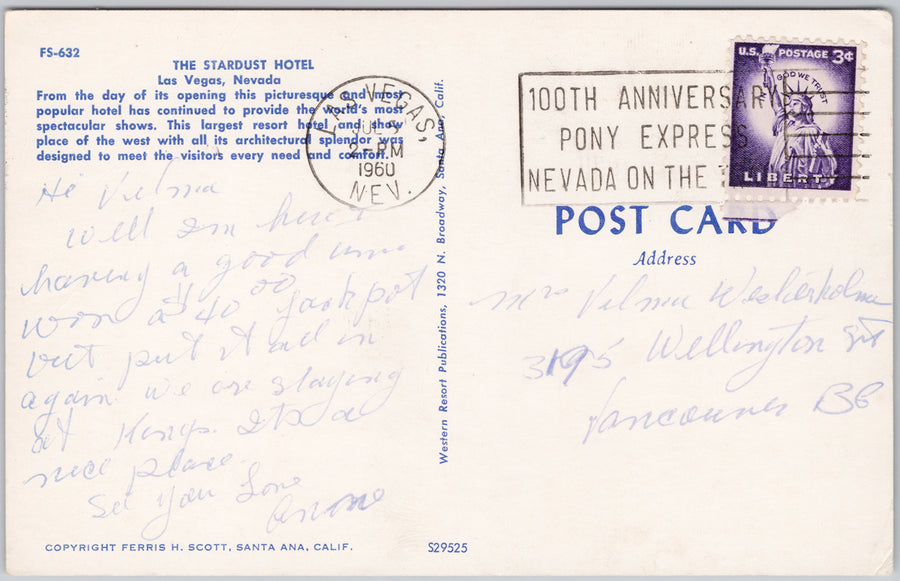 FS-632
THE STARDUST HOTEL
Las Vegas, Nevada
From the day of its opening this picturesque and most
popular hotel has continued to provide the world's most
spectacular shows. This largest resort hotel and show
place of the west with all its architectural splendor was
designed to meet the visitors every need and comfort.
LAS VEGAS,
JUL
2-PM
1960
NEV.
Hi Vilma
Well Im here
having a good time
won a $40 00 Jackpot
but put it all in
again we are staying
at Kings. Its a
nice place.
See You Love
COPYRIGHT FERRIS H. SCOTT, SANTA ANA, CALIF.
Western Resort Publications, 1320 N. Broadway, Santa Ana, Calif.
S29525
100TH ANNIVERSARY
PONY EXPRESS
NEVADA ON THE
U.S. POSTAGE 3¢
IN GOD WE TRUST
LIBERTY
POST CARD
Address
Mrs Vilma Westerholm
3195 Wellington St
Vancouver BC